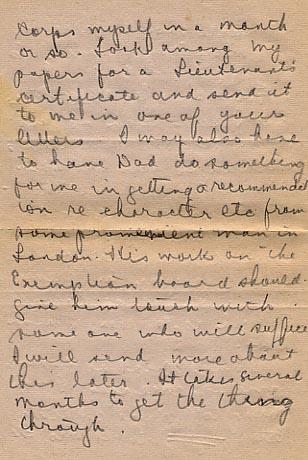 corps myself in a month
or so. Look among my
papers for a Lieutenant's
certificate and send it
to me in one of your
letters I may also have
to have Dad do something
for me in getting a recommendat
ion re character etc from
some prominent man in
London. His work on the
Exemption board should
give him touch with
some one who will suffice
I will send more about
this later. It takes several
months to get the thing
through.